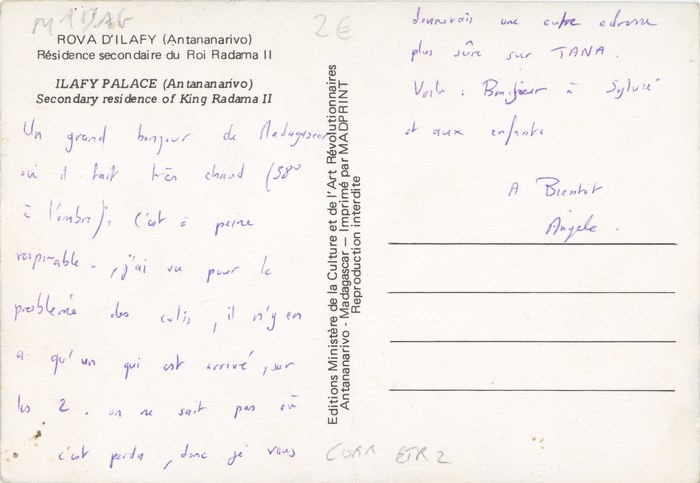 MADAG
2€
ROVA D'ILAFY (Antananarivo)
Résidence secondaire du Roi Radama II
ILAFY PALACE (Antananarivo)
Secondary residence of King Radama II
Un grand bonjour de Madagascar
où il fait très chaud (38°
à l'ombre). C'est à peine
respirable. j'ai vu pour le
problème des colis, il n'y en
a qu'un qui est arrivé, sur
les 2. on ne sait pas où
c'est perdu, donc je vous
Editions Ministère de la Culture et de l'Art Révolutionnaires
Antananarivo - Madagascar — Imprimé par MADPRINT
Reproduction interdite
donnerais une autre adresse
plus sûre sur TANA.
Voilà. Bonjour à
et aux enfants
A Bientôt
Angele.
CORR ETR 2